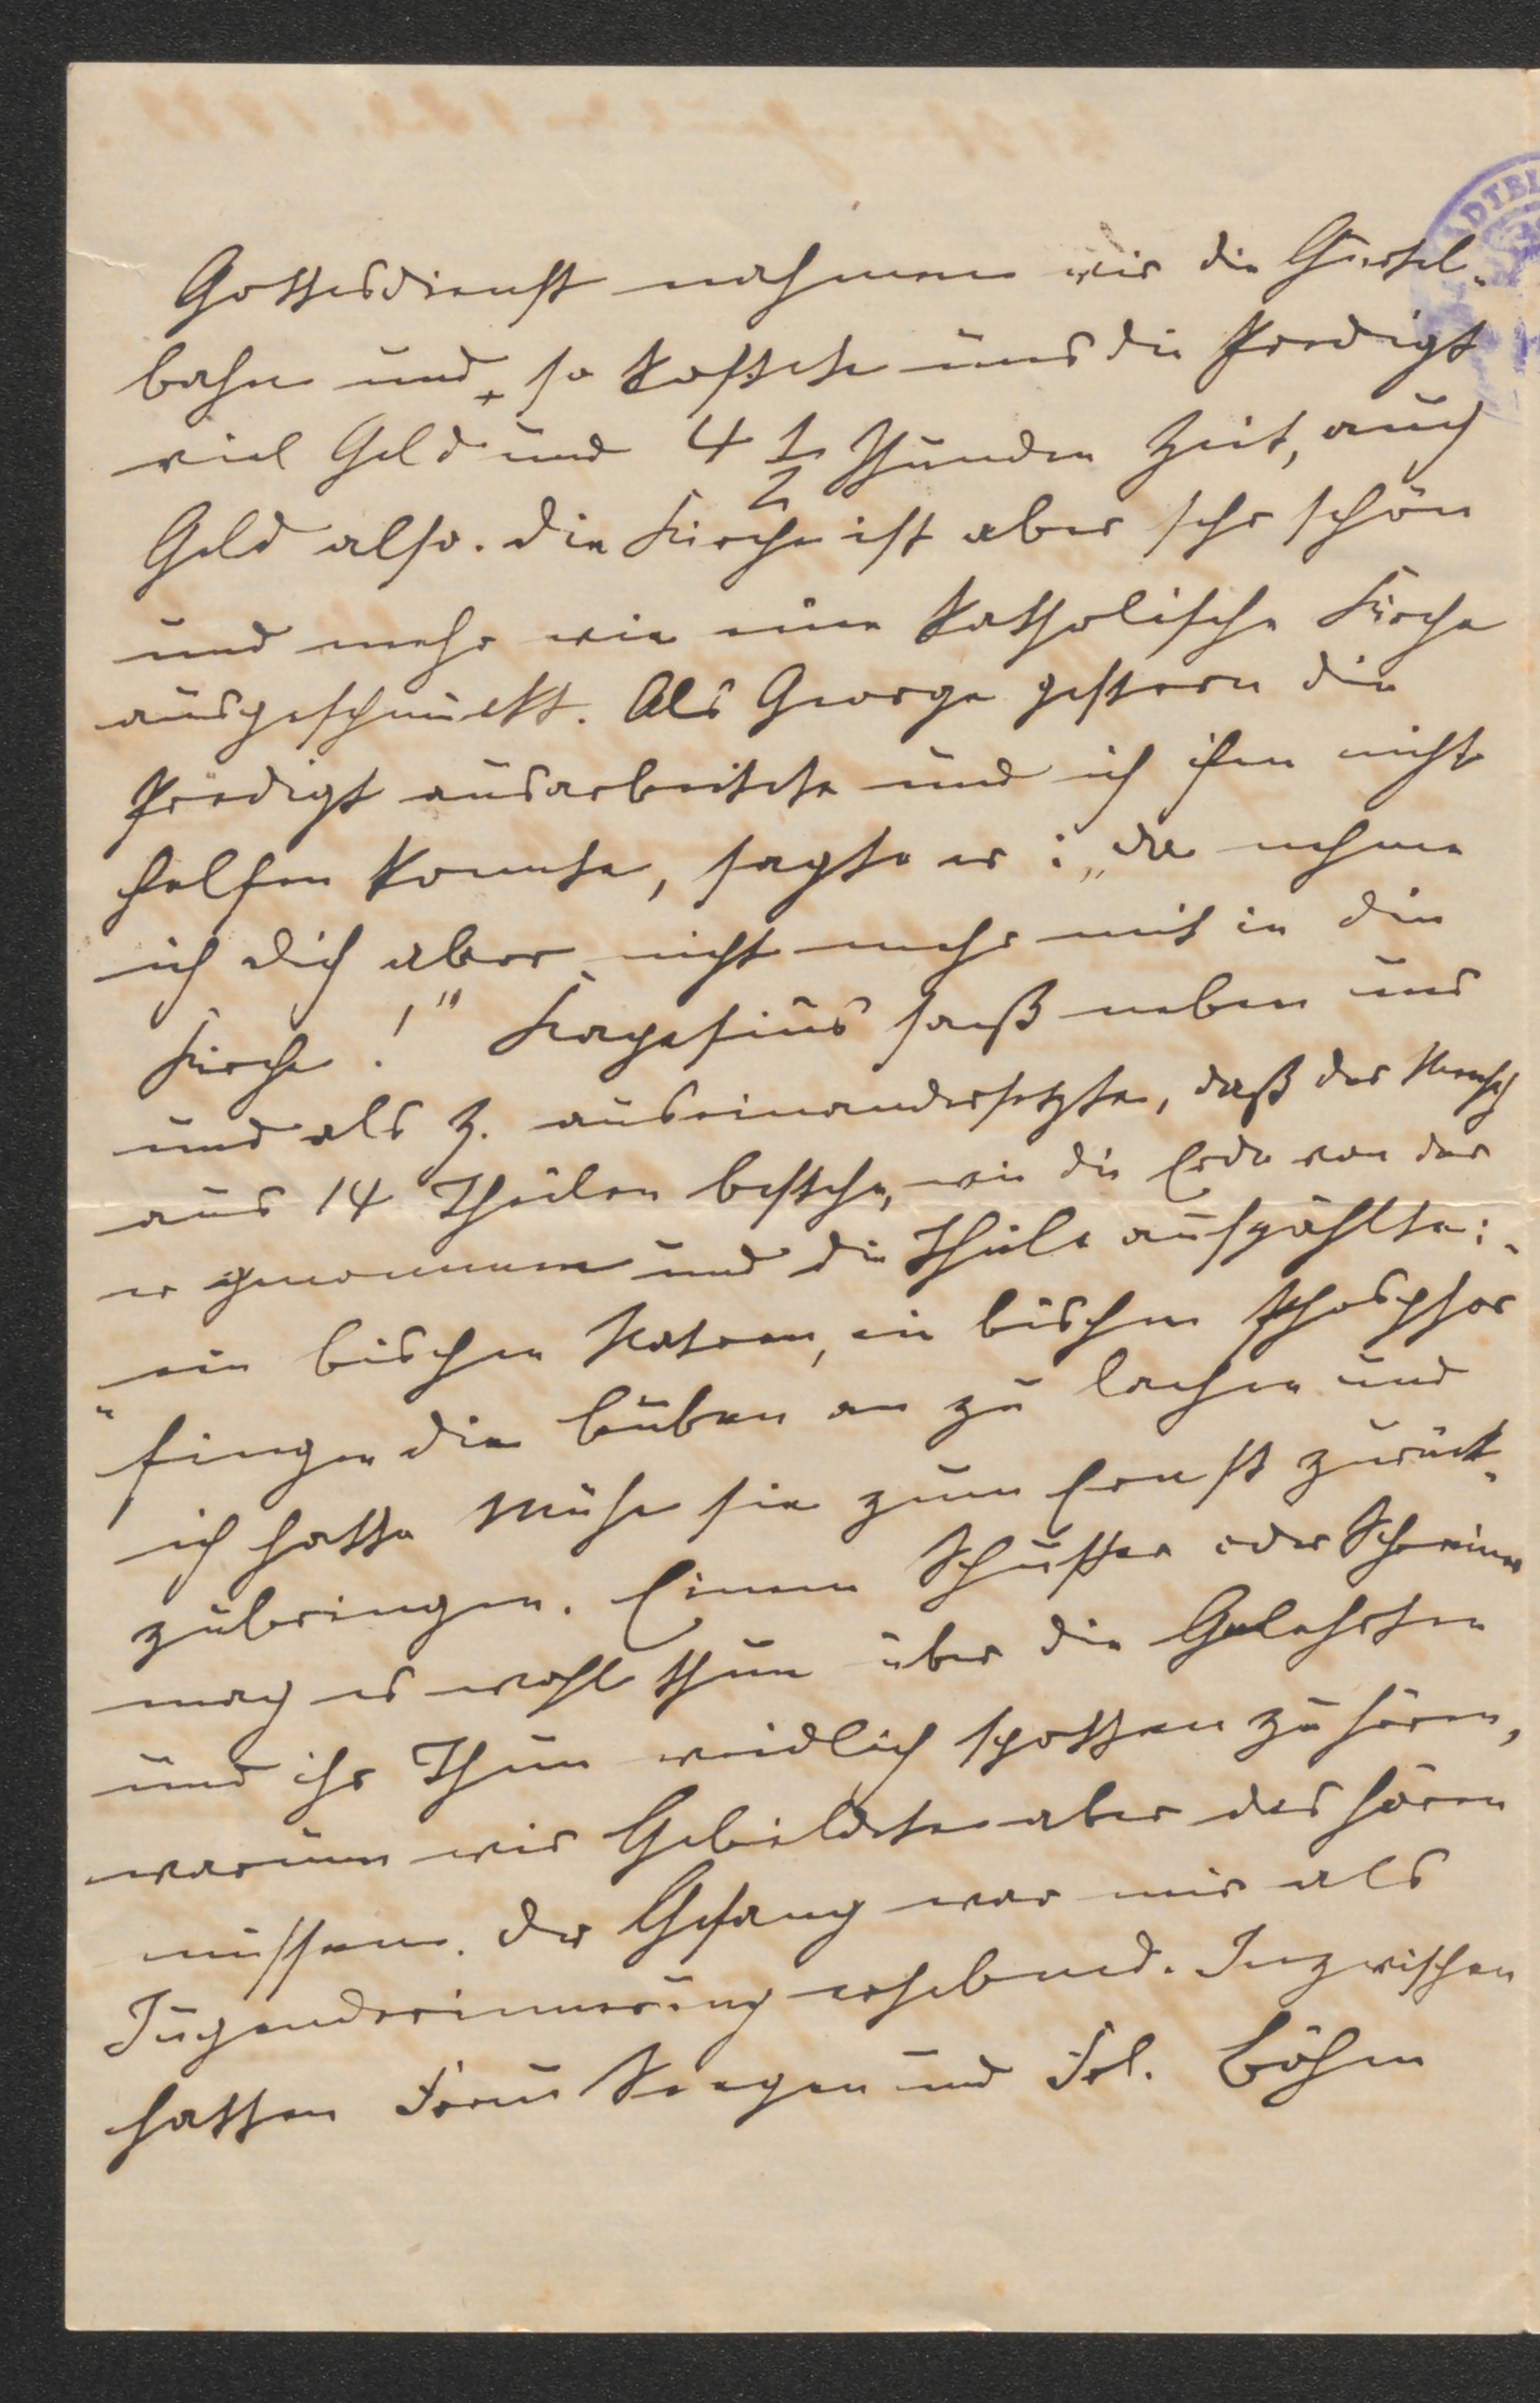 Gottesdienst nahmen wir die Gürtel-
bahn und so kostete uns die Predigt
viel Geld und 4 1/2 Stunden Zeit, auch
Geld also. Die Kirche ist aber sehr schön
und mehr wie eine katholische Kirche
ausgeschmückt. Als George gestern die
Predigt ausarbeitete und ich ihm nicht
helfen konnte, sagte er: „da nehme
ich dich aber nicht mehr mit in die
Kirche!" saß neben uns
und als Z. auseinandersetzte, daß der Mensch
aus 14 Theilen bestehe, wie die Erde von der
er genommen und die Theile aufzählte: „
ein bischen Natron, ein bischen Phosphor
" fingen die Buben an zu lachen und
ich hatte Mühe sie zum Ernst zurück-
zubringen. Einem Schuster oder Schreiner
mag es wohl thun über die Gelehrten
und ihr Thun weidlich spotten zu hören,
warum wir Gebildete aber das hören
müssen. Der Gesang war mir als
Jugenderinnerung erhebend. Inzwischen
hatten Frau und Frl. Böhm